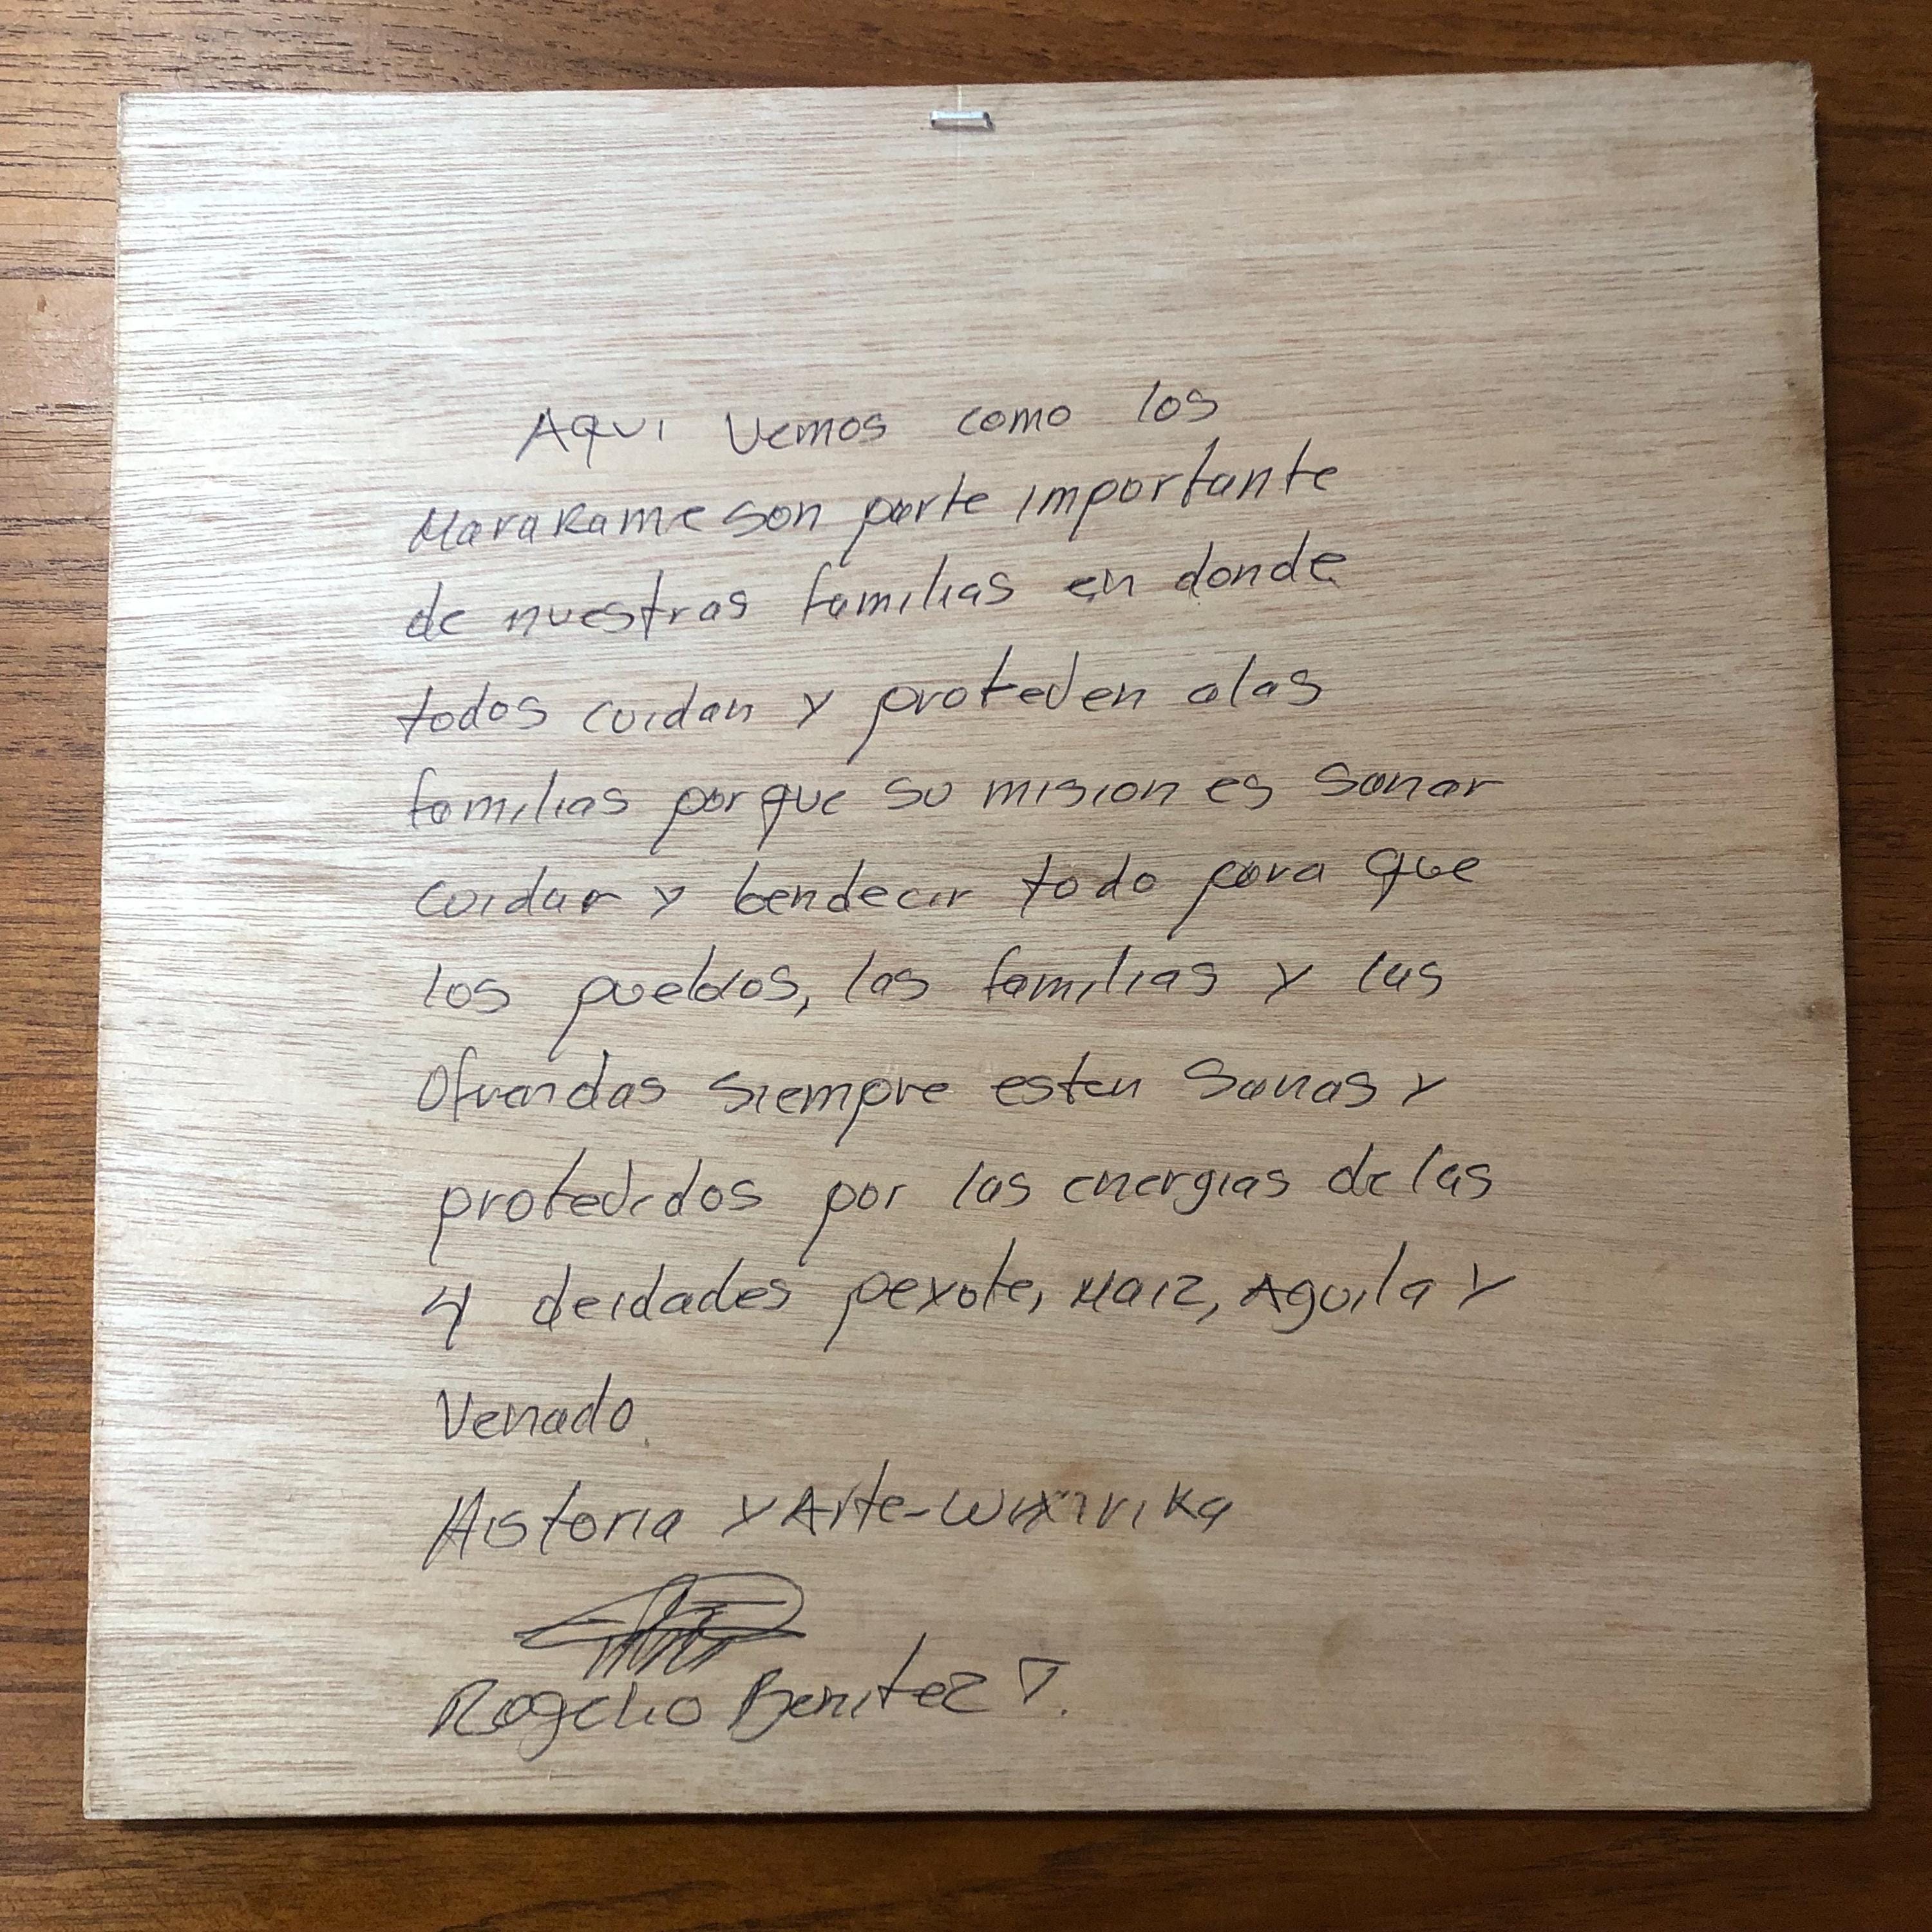 Aqui Vemos como los
Marakame son parte importante
de nuestras familias en donde
todos cuidan y proteJen alas
familias porque su mision es sanar
cuidar y bendecir todo para que
los pueblos, las familias y las
Ofrendas siempre esten Sanas y
proteJidos por las energias de las
4 deidades peyote, Maiz, Aguila y
Venado.
Historia y Arte-Wixarika
Rogelio Benitez